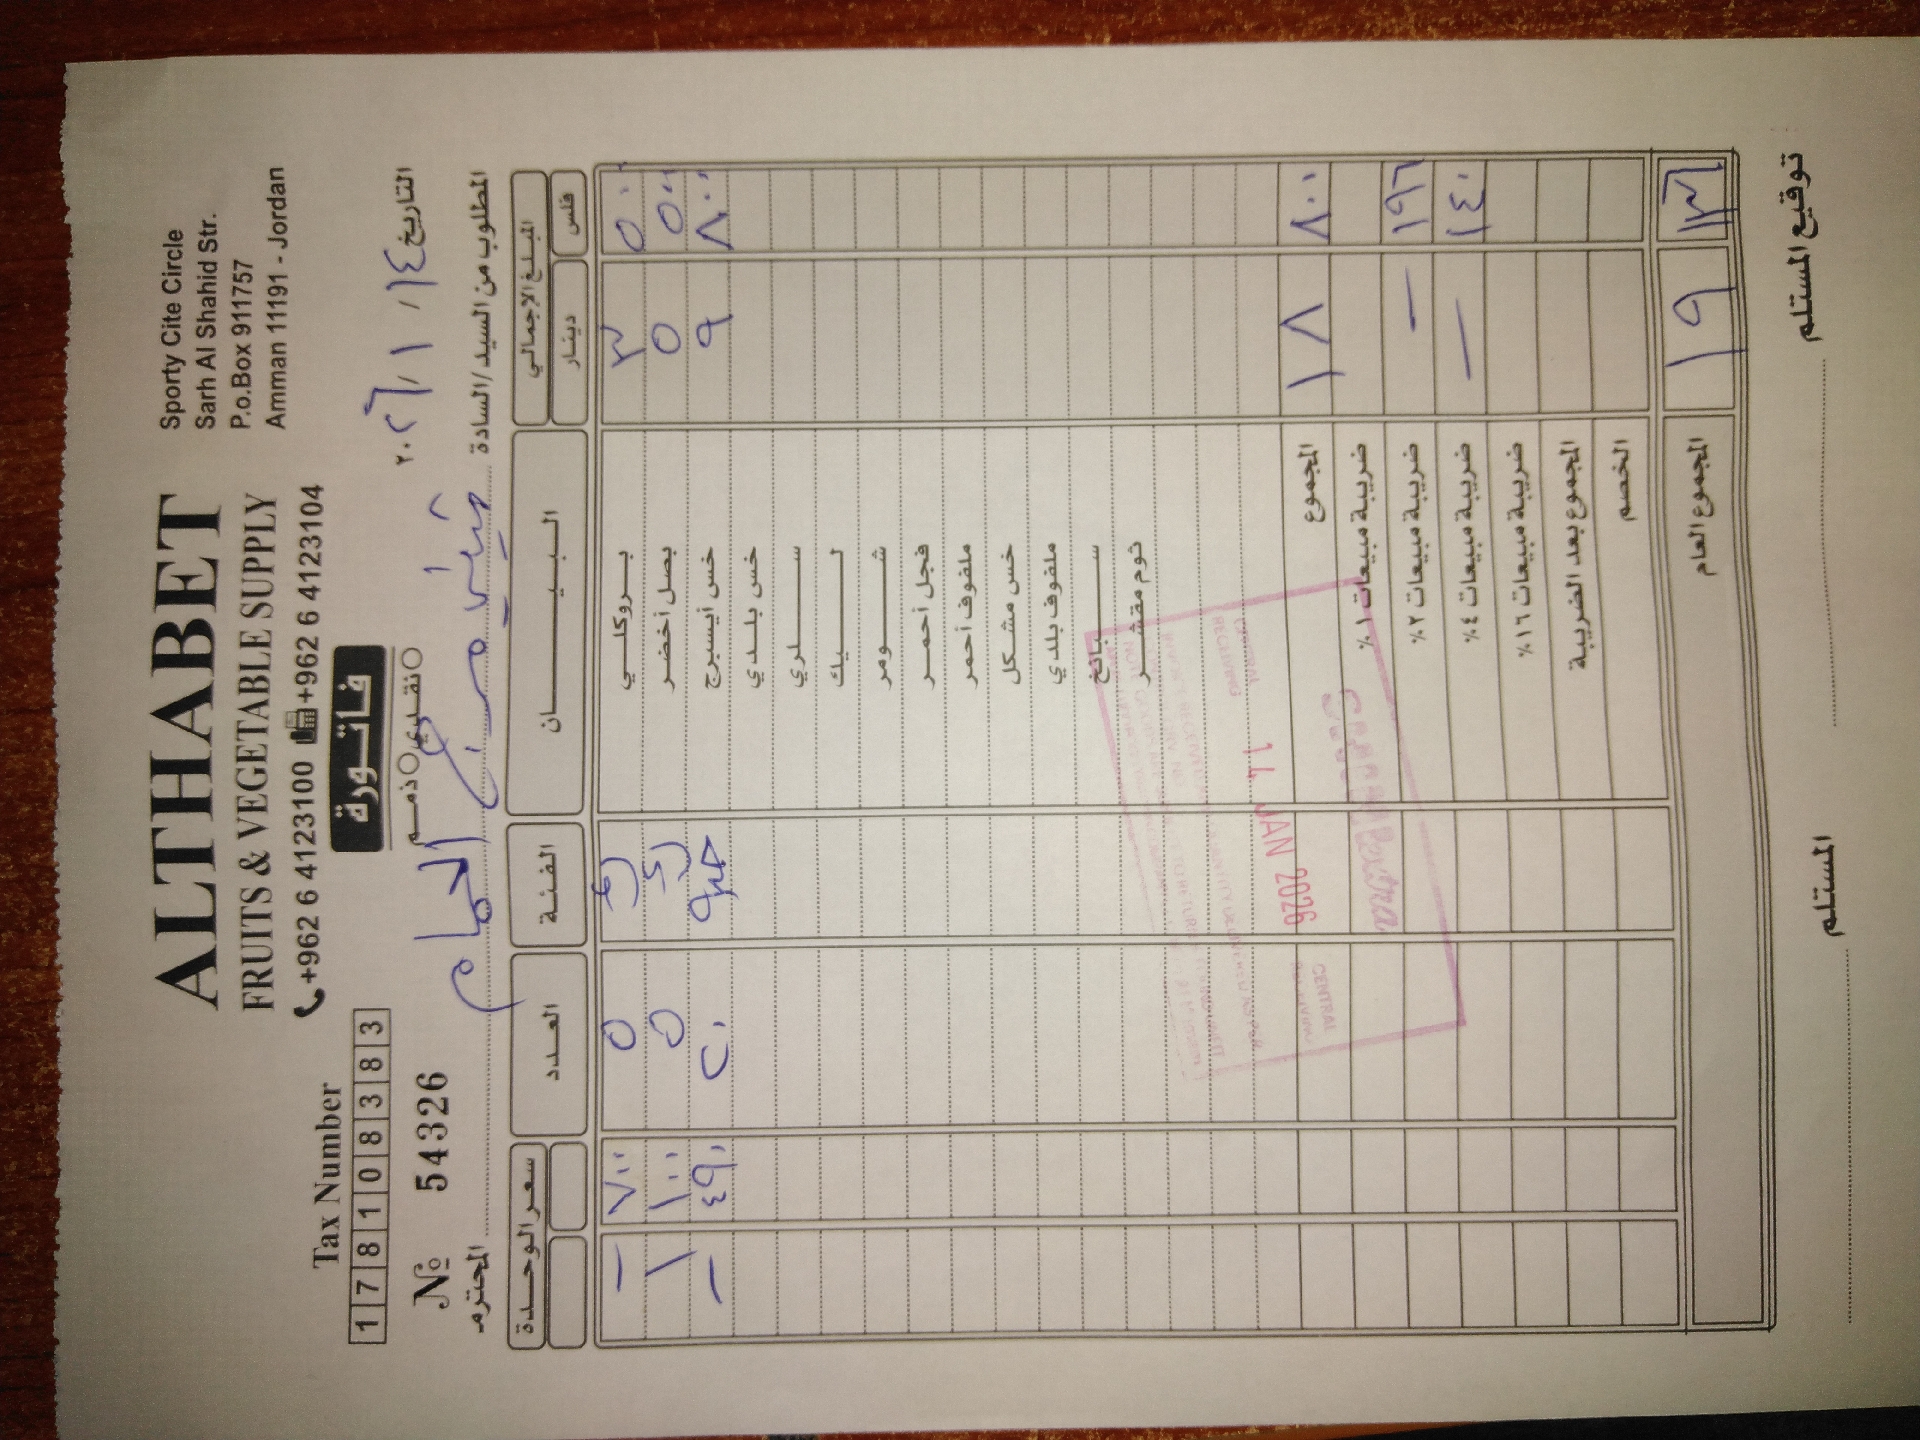 ALTHABET
FRUITS & VEGETABLE SUPPLY
+962 6 4123100 +962 6 4123104
Sporty Cite Circle
Sarh Al Shahid Str.
P.o.Box 911757
Amman 11191 - Jordan
Tax Number
1 7 8 1 0 8 3 8 3
فاتورة
نقدي ذمم
№ 54326
التاريخ ١٤ / ١ / ٢٠٢٦
المطلوب من السيد/السادة المحترم
المبلغ الإجمالي البيـــان الفئة العدد سعر الوحدة
فلس دينار
٥٠٠ ٣ بروكلي ٥ ٧٠٠ -
٥٠٠ ٥ بصل أخضر ٥ ١٠٠ ١
٨٠٠ ٩ خس أيسبرج حبة ٢٠ ٤٩٠ -
خس بلدي
سلري
ليك
شومر
فجل أحمر
ملفوف أحمر
خس مشكل
ملفوف بلدي
سبانخ
ثوم مقشر
٨٠٠ ١٨ المجموع
ضريبة مبيعات ١٪
١٩٦ - ضريبة مبيعات ٢٪
١٤٠ - ضريبة مبيعات ٤٪
ضريبة مبيعات ١٦٪
المجموع بعد الضريبة
الخصم
١٣٦ ١٩ المجموع العام
CENTRAL
RECEIVING
14 JAN 2026
CENTRAL
توقيع المستلم
المستلم